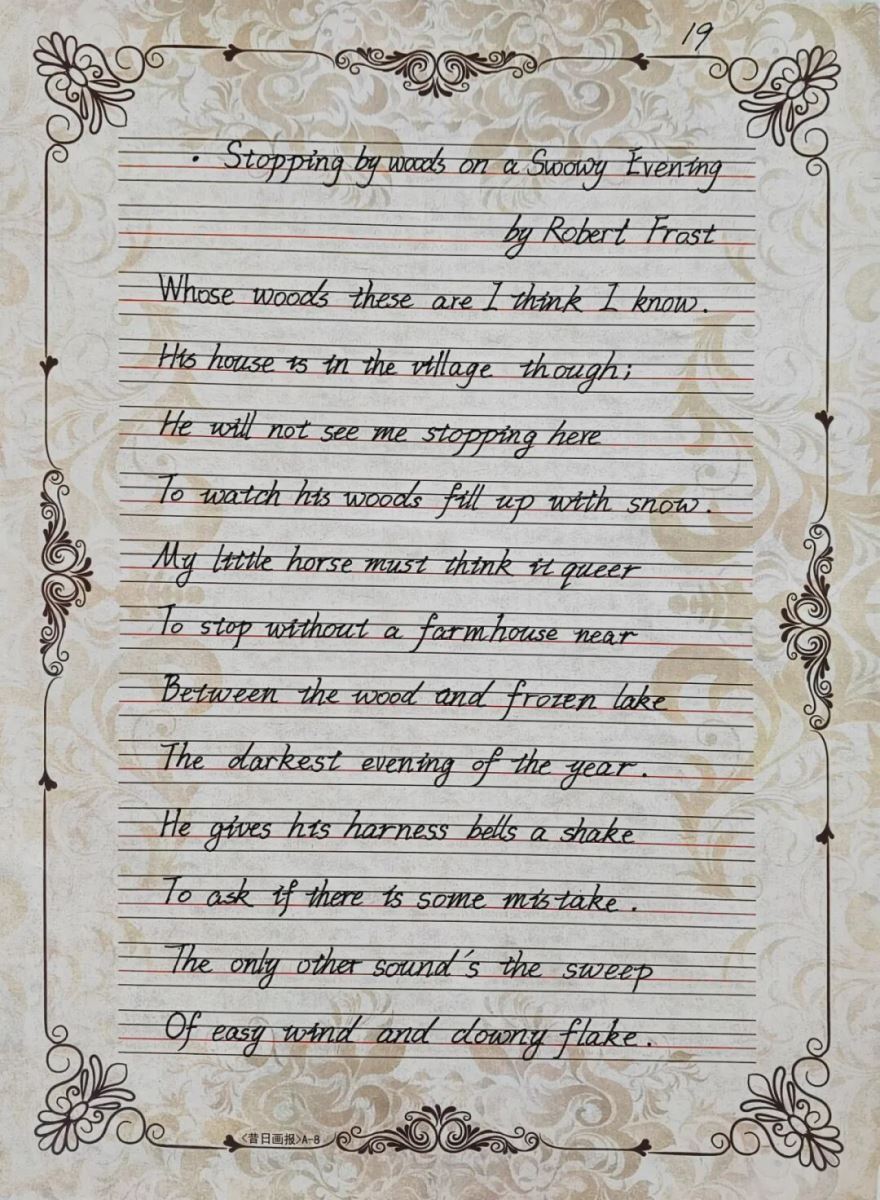 19
· Stopping by woods on a Swowy Evening
by Robert Frost
Whose woods these are I think I know.
His house is in the village though;
He will not see me stopping here
To watch his woods fill up with snow.
My little horse must think it queer
To stop without a farmhouse near
Between the wood and frozen lake
The darkest evening of the year.
He gives his harness bells a shake
To ask if there is some mistake.
The only other sound's the sweep
Of easy wind and downy flake.
<昔日画报>A-8